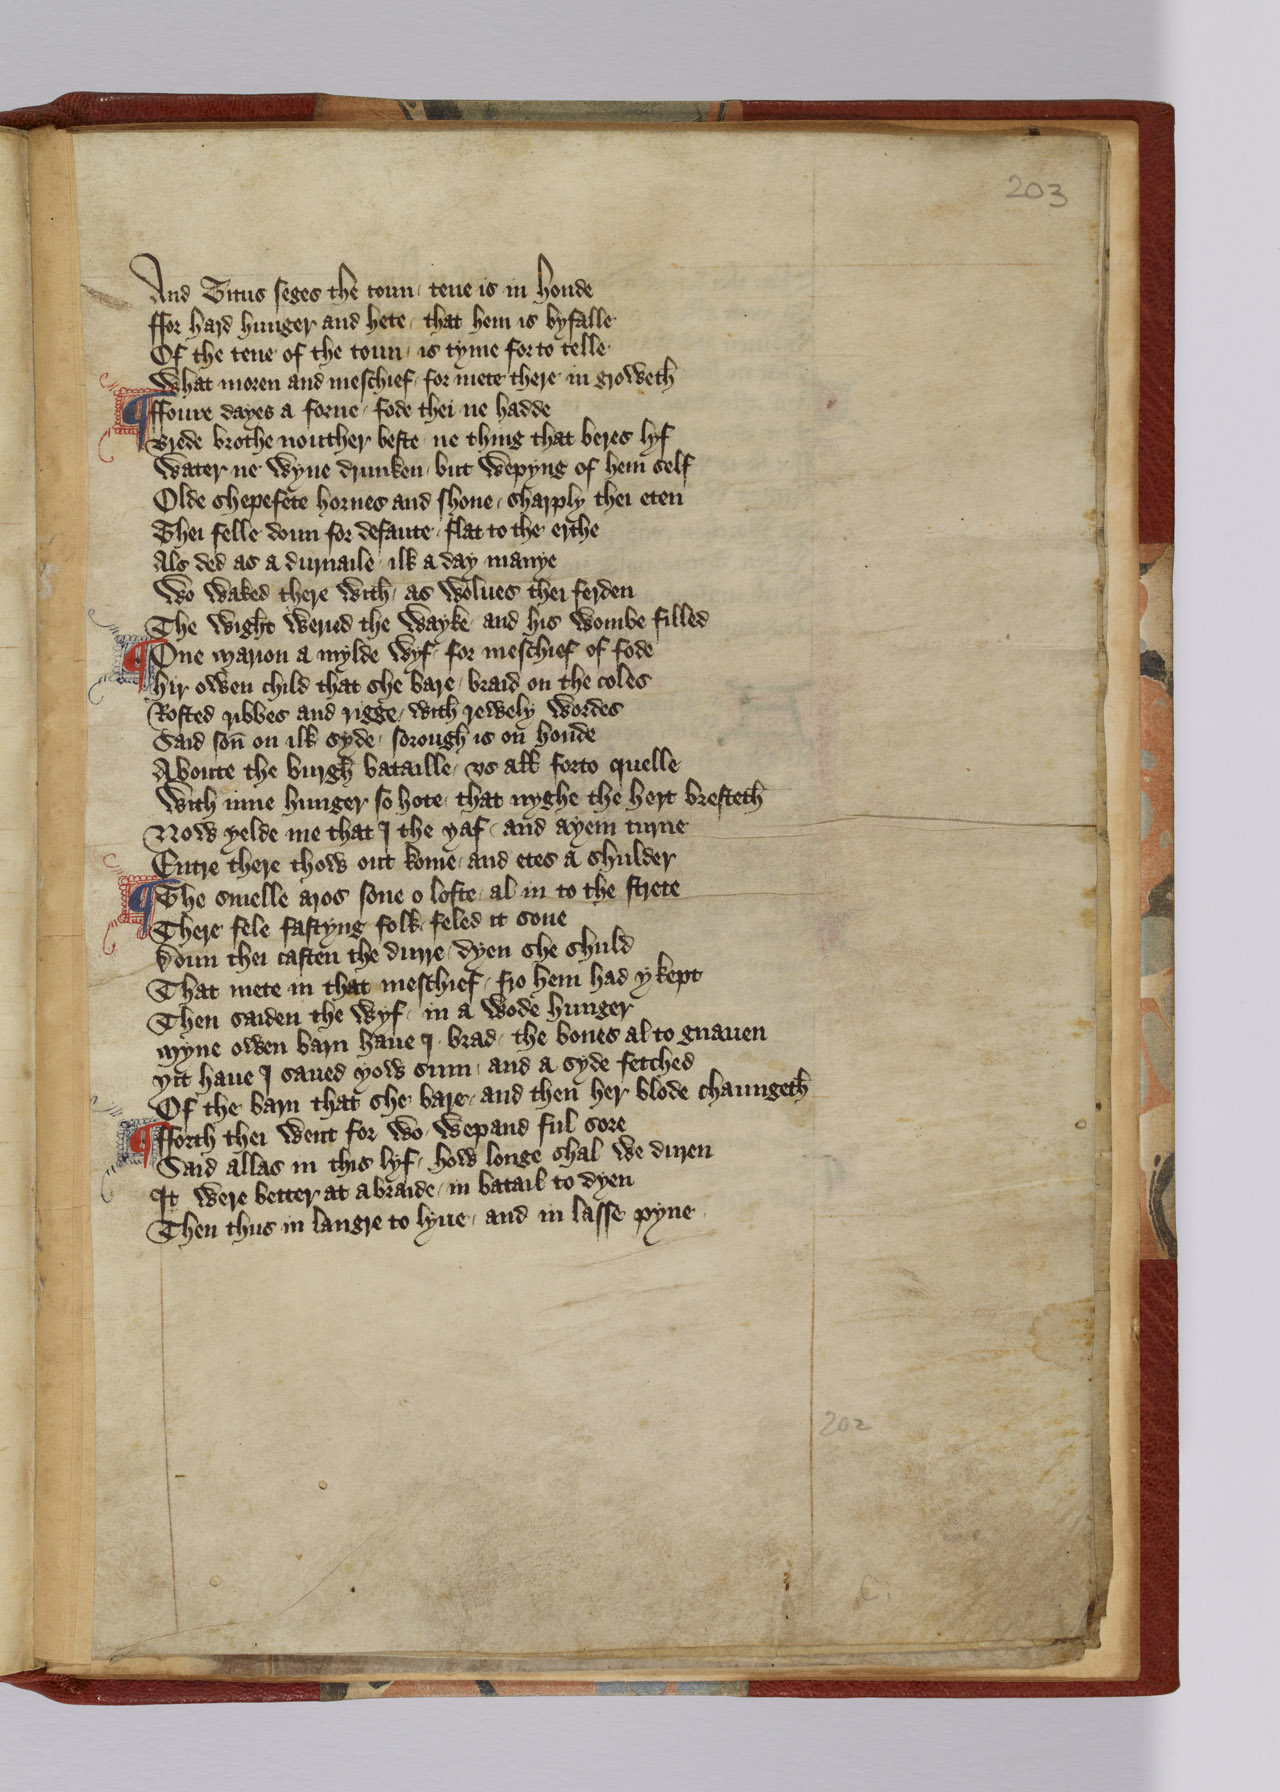 203
And Titus seges the toun / tene is in honde
ffor hard hunger and hete / that hem is byfalle
Of the tene of the toun / is tyme forto telle
What moren and meschief / for mete there in groweth
¶ ffoure dayes a forne / fode thei ne hadde
Brede brothe nouther beste / ne thing that beres lyf
Water ne wyne drunken / but wepyng of hem self
Olde shepefete hornes and shone / sharply thei eten
Thei felle doun for defaute / flat to the erthe
Als ded as a durnaile / ilk a day manye
Wo waked there with / as wolues thei ferden
The wight weried the wayke / and his wombe filled
¶ One marion a mylde wyf / for meschief of fode
Hir owen child that she bare / braid on the coles
Rosted ribbes and rigge / with rewely wordes
Said son on ilk syde / sorough is on honde
Aboute the burgh bataille / vs all forto quelle
With inne hunger so hote / that nyghe the hert bresteth
Now yelde me that I the yaf / and ayein turne
Entre there thow out kome / and etes a shulder
¶ The smelle aros sone o lofte / al in to the strete
There fele fastyng folk / feled it sone
Doun thei casten the durre / dyen she shuld
That mete in that meschief / fro hem had ykept
Then saiden the wyf / in a wode hunger
Myne owen barn haue I brad / the bones al to gnauen
Yit haue I saued yow sum / and a syde fetched
Of the barn that she bare / and then her blode chaungeth
¶ fforth thei went for wo / wepand ful sore
Said allas in this lyf / how longe shal we duren
It were better at abraide / in batail to dyen
Then thus in langre to lyue / and in lasse pyne
202
C.